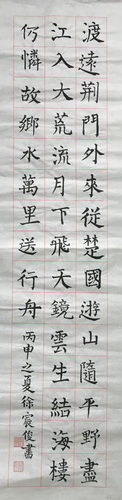 渡遠荆門外來從楚國遊山隨平野盡
江入大荒流月下飛天鏡雲生結海樓
仍憐故鄉水萬里送行舟丙申之夏徐宸俊書